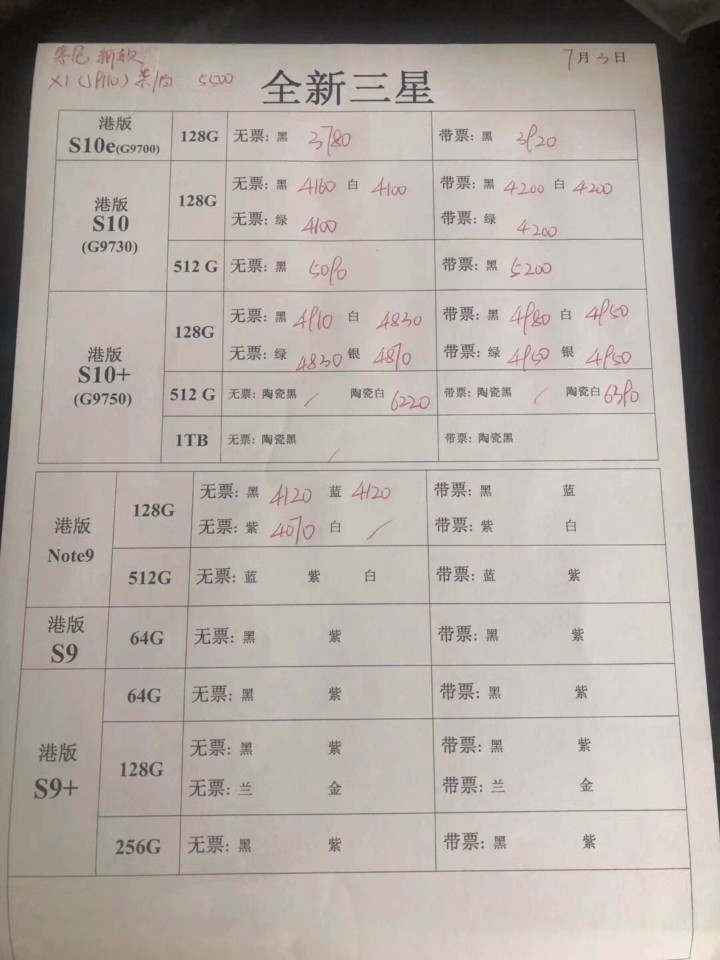 索尼 新款
X1 (J9110) 紫/白 5500
7月3日
全新三星
港版
S10e(G9700)
128G
无票: 黑 3780
带票: 黑 3920
港版
S10
(G9730)
128G
无票: 黑 4160 白 4100
带票: 黑 4200 白 4200
无票: 绿 4100
带票: 绿 4200
512 G
无票: 黑 5090
带票: 黑 5200
港版
S10+
(G9750)
128G
无票: 黑 4910 白 4830
带票: 黑 4980 白 4950
无票: 绿 4830 银 4870
带票: 绿 4950 银 4950
512 G
无票: 陶瓷黑 / 陶瓷白 6220
带票: 陶瓷黑 / 陶瓷白 6390
1TB
无票: 陶瓷黑 /
带票: 陶瓷黑
港版
Note9
128G
无票: 黑 4120 蓝 4120
带票: 黑 蓝
无票: 紫 4070 白 /
带票: 紫 白
512G
无票: 蓝 紫 白
带票: 蓝 紫
港版
S9
64G
无票: 黑 紫
带票: 黑 紫
港版
S9+
64G
无票: 黑 紫
带票: 黑 紫
128G
无票: 黑 紫
带票: 黑 紫
无票: 兰 金
带票: 兰 金
256G
无票: 黑 紫
带票: 黑 紫